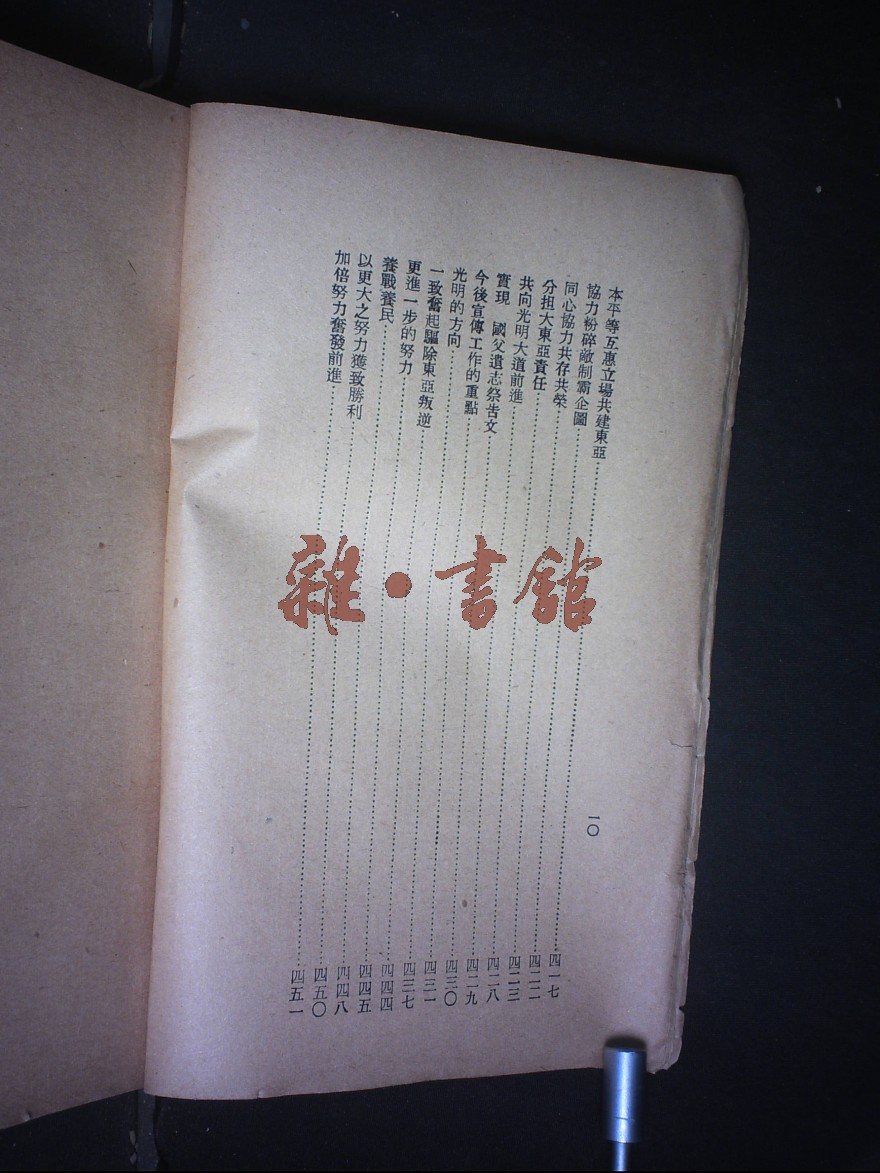 本平等互惠立場共建東亞……四一七
協力粉碎敵制霸企圖……四二二
同心協力共存共榮……四二三
分担大東亞責任……四二八
共向光明大道前進……四二九
實現　國父遺志祭告文……四三〇
今後宣傳工作的重點……四三一
光明的方向……四三七
一致奮起驅除東亞叛逆……四四四
更進一步的努力……四四五
養戰養民……四四八
以更大之努力獲致勝利……四五〇
加倍努力奮發前進……四五一
一〇
雜·書館